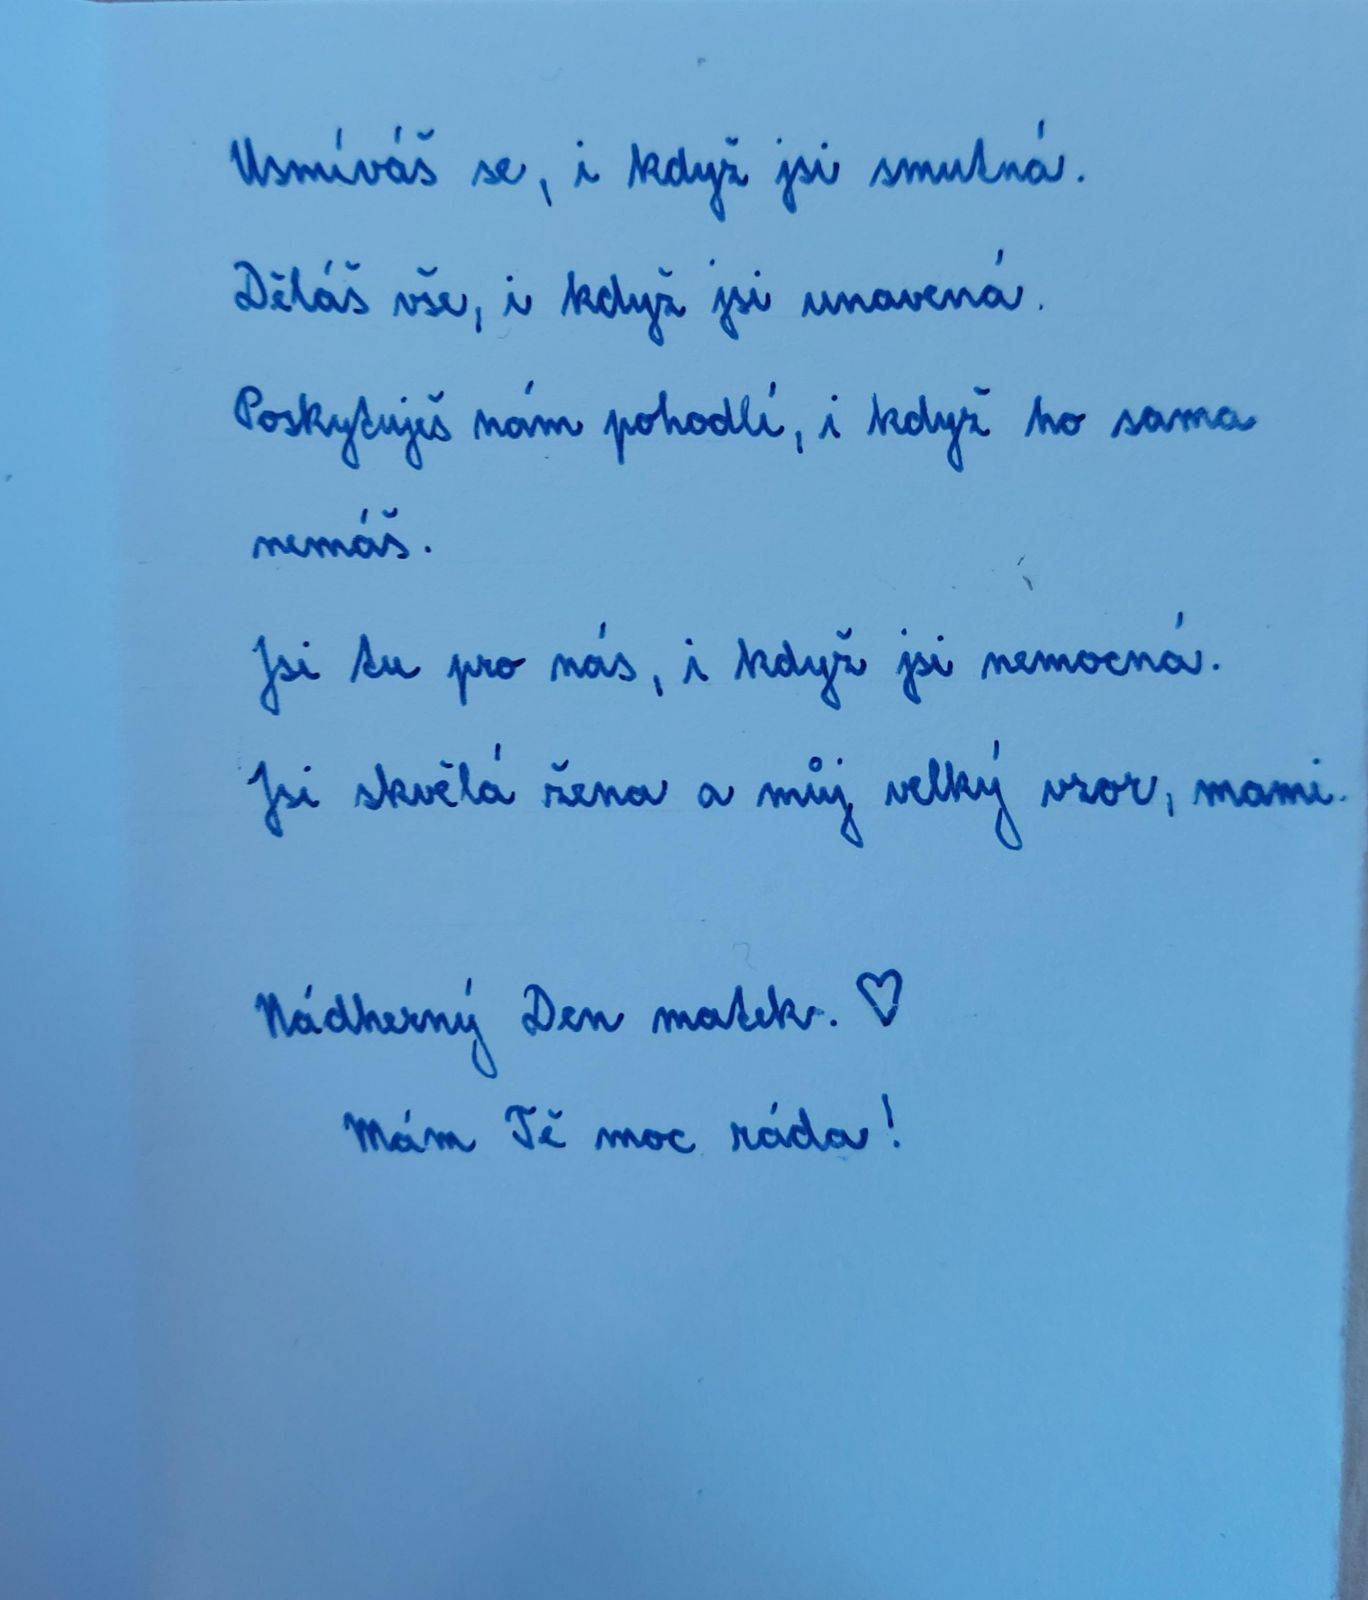 Usmíváš se, i když jsi smutná.
Děláš vše, i když jsi unavená.
Poskytuješ nám pohodlí, i když ho sama
nemáš.
Jsi tu pro nás, i když jsi nemocná.
Jsi skvělá žena a můj velký vzor, mami.
Nádherný Den matek. ♡
Mám Tě moc ráda!